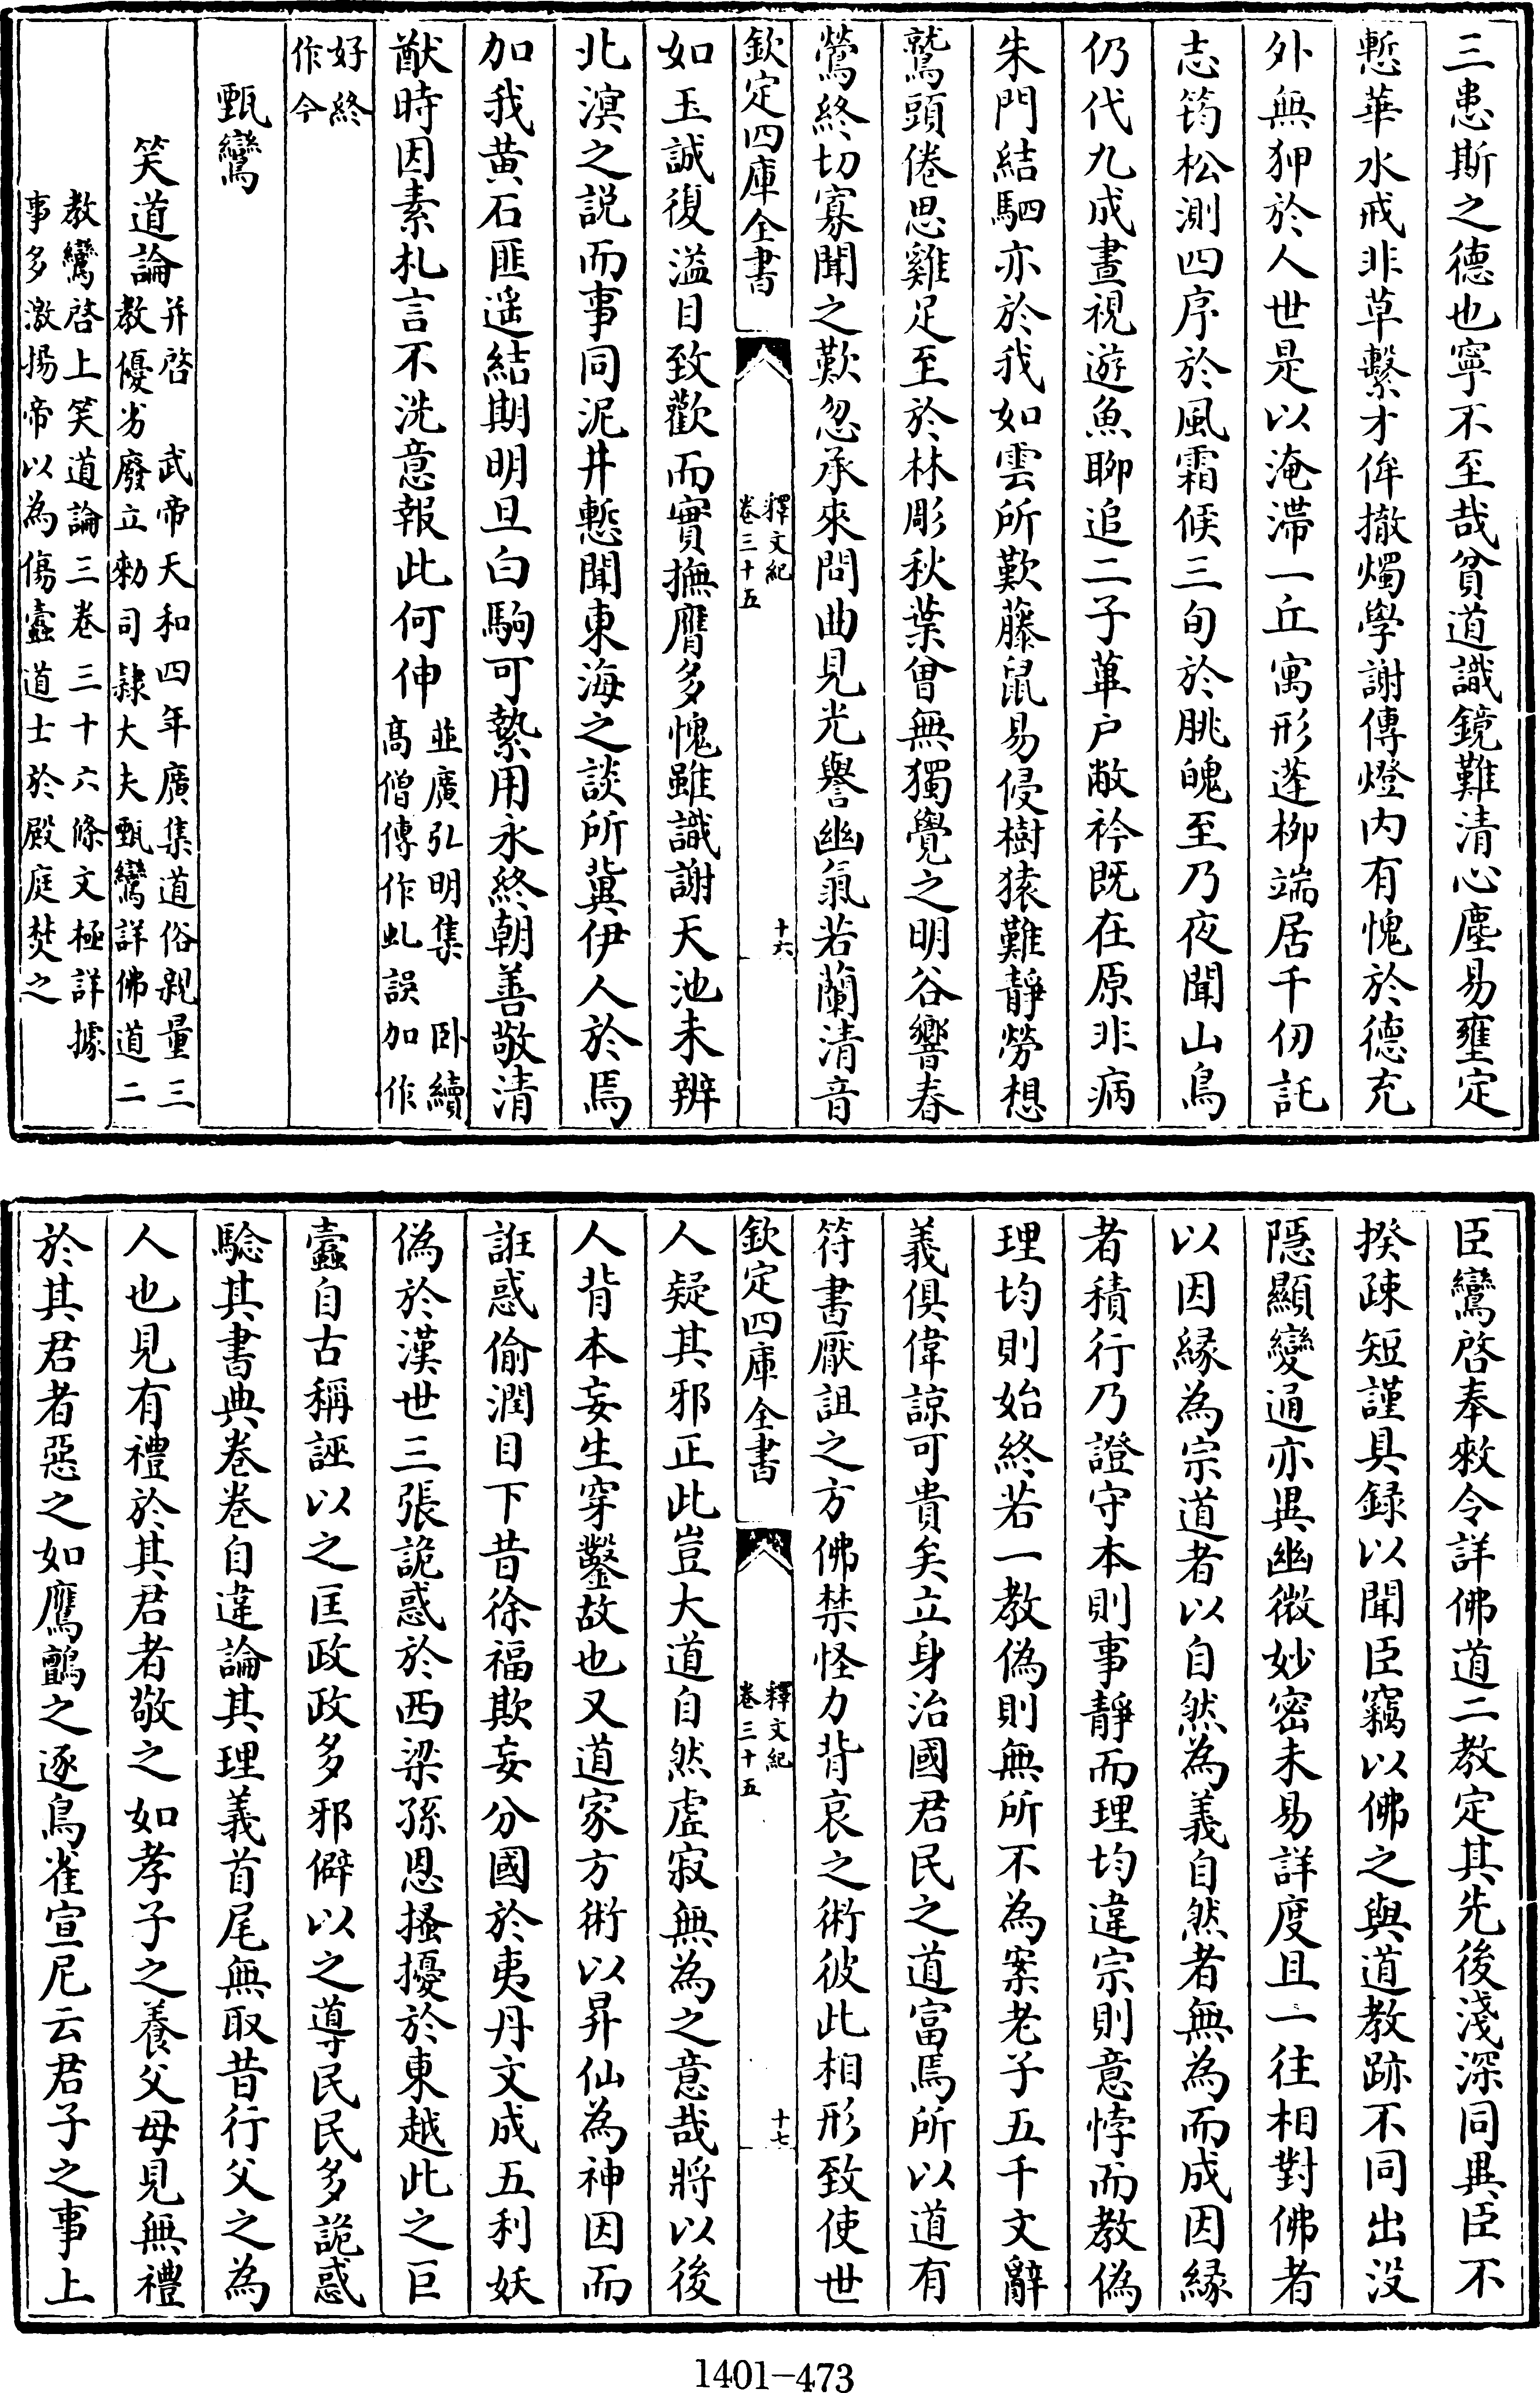 三患斯之德也寧不至哉貧道識鏡難清心塵易壅定
慙華水戒非草繫才侔撤燭學謝傳燈內有愧於德充
外無狎於人世是以淹滯一丘寓形蓬柳端居千仞託
志筠松測四序於風霜候三旬於朓魄至乃夜聞山鳥
仍代九成晝視遊魚聊追二子蓽戶敝衿既在原非病
朱門結駟亦於我如雲所歎藤鼠易侵樹猿難靜勞想
鷲頭倦思雞足至於林彫秋葉曾無獨覺之明谷響春
鶯終切寡聞之歎忽承來問曲見光譽幽氣若蘭清音
欽定四庫全書
釋文紀
卷三十五
十六
如玉誠復溢目致歡而實撫膺多愧雖識謝天池未辨
北溟之説而事同泥井慙聞東海之談所冀伊人於焉
加我黃石匪遥結期明旦白駒可縶用永終朝善敬清
猷時因素札言不洗意報此何伸
並廣弘明集 卧續
高僧傳作虬誤 加作
好終
作今
甄鸞
笑道論
并啓 武帝天和四年廣集道俗親量三
教優劣廢立勑司隸大夫甄鸞詳佛道二
教鸞啓上笑道論三卷三十六條文極詳據
事多激揚帝以為傷蠹道士於殿庭焚之
臣鸞啓奉敕令詳佛道二教定其先後淺深同異臣不
揆疎短謹具録以聞臣竊以佛之與道教跡不同出没
隱顯變通亦異幽微妙密未易詳度且一往相對佛者
以因緣為宗道者以自然為義自然者無為而成因緣
者積行乃證守本則事靜而理均違宗則意悖而教偽
理均則始終若一教偽則無所不為案老子五千文辭
義俱偉諒可貴矣立身治國君民之道富焉所以道有
符書厭詛之方佛禁怪力背哀之術彼此相形致使世
欽定四庫全書
釋文紀
卷三十五
十七
人疑其邪正此豈大道自然虛寂無為之意哉將以後
人背本妄生穿鑿故也又道家方術以昇仙為神因而
誑惑偷潤目下昔徐福欺妄分國於夷丹文成五利妖
偽於漢世三張詭惑於西梁孫恩搔擾於東越此之巨
蠹自古稱誣以之匡政政多邪僻以之導民民多詭惑
騐其書典卷卷自違論其理義首尾無取昔行父之為
人也見有禮於其君者敬之如孝子之養父母見無禮
於其君者惡之如鷹鸇之逐鳥雀宣尼云君子之事上
1401-473